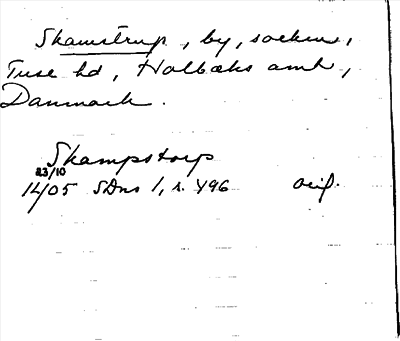 Skamstrup, by, socken,
Tuse hd, Holbæks amt,
Danmark.
Skampstorp
23/10
1405 SDns 1, s. 496 orig.